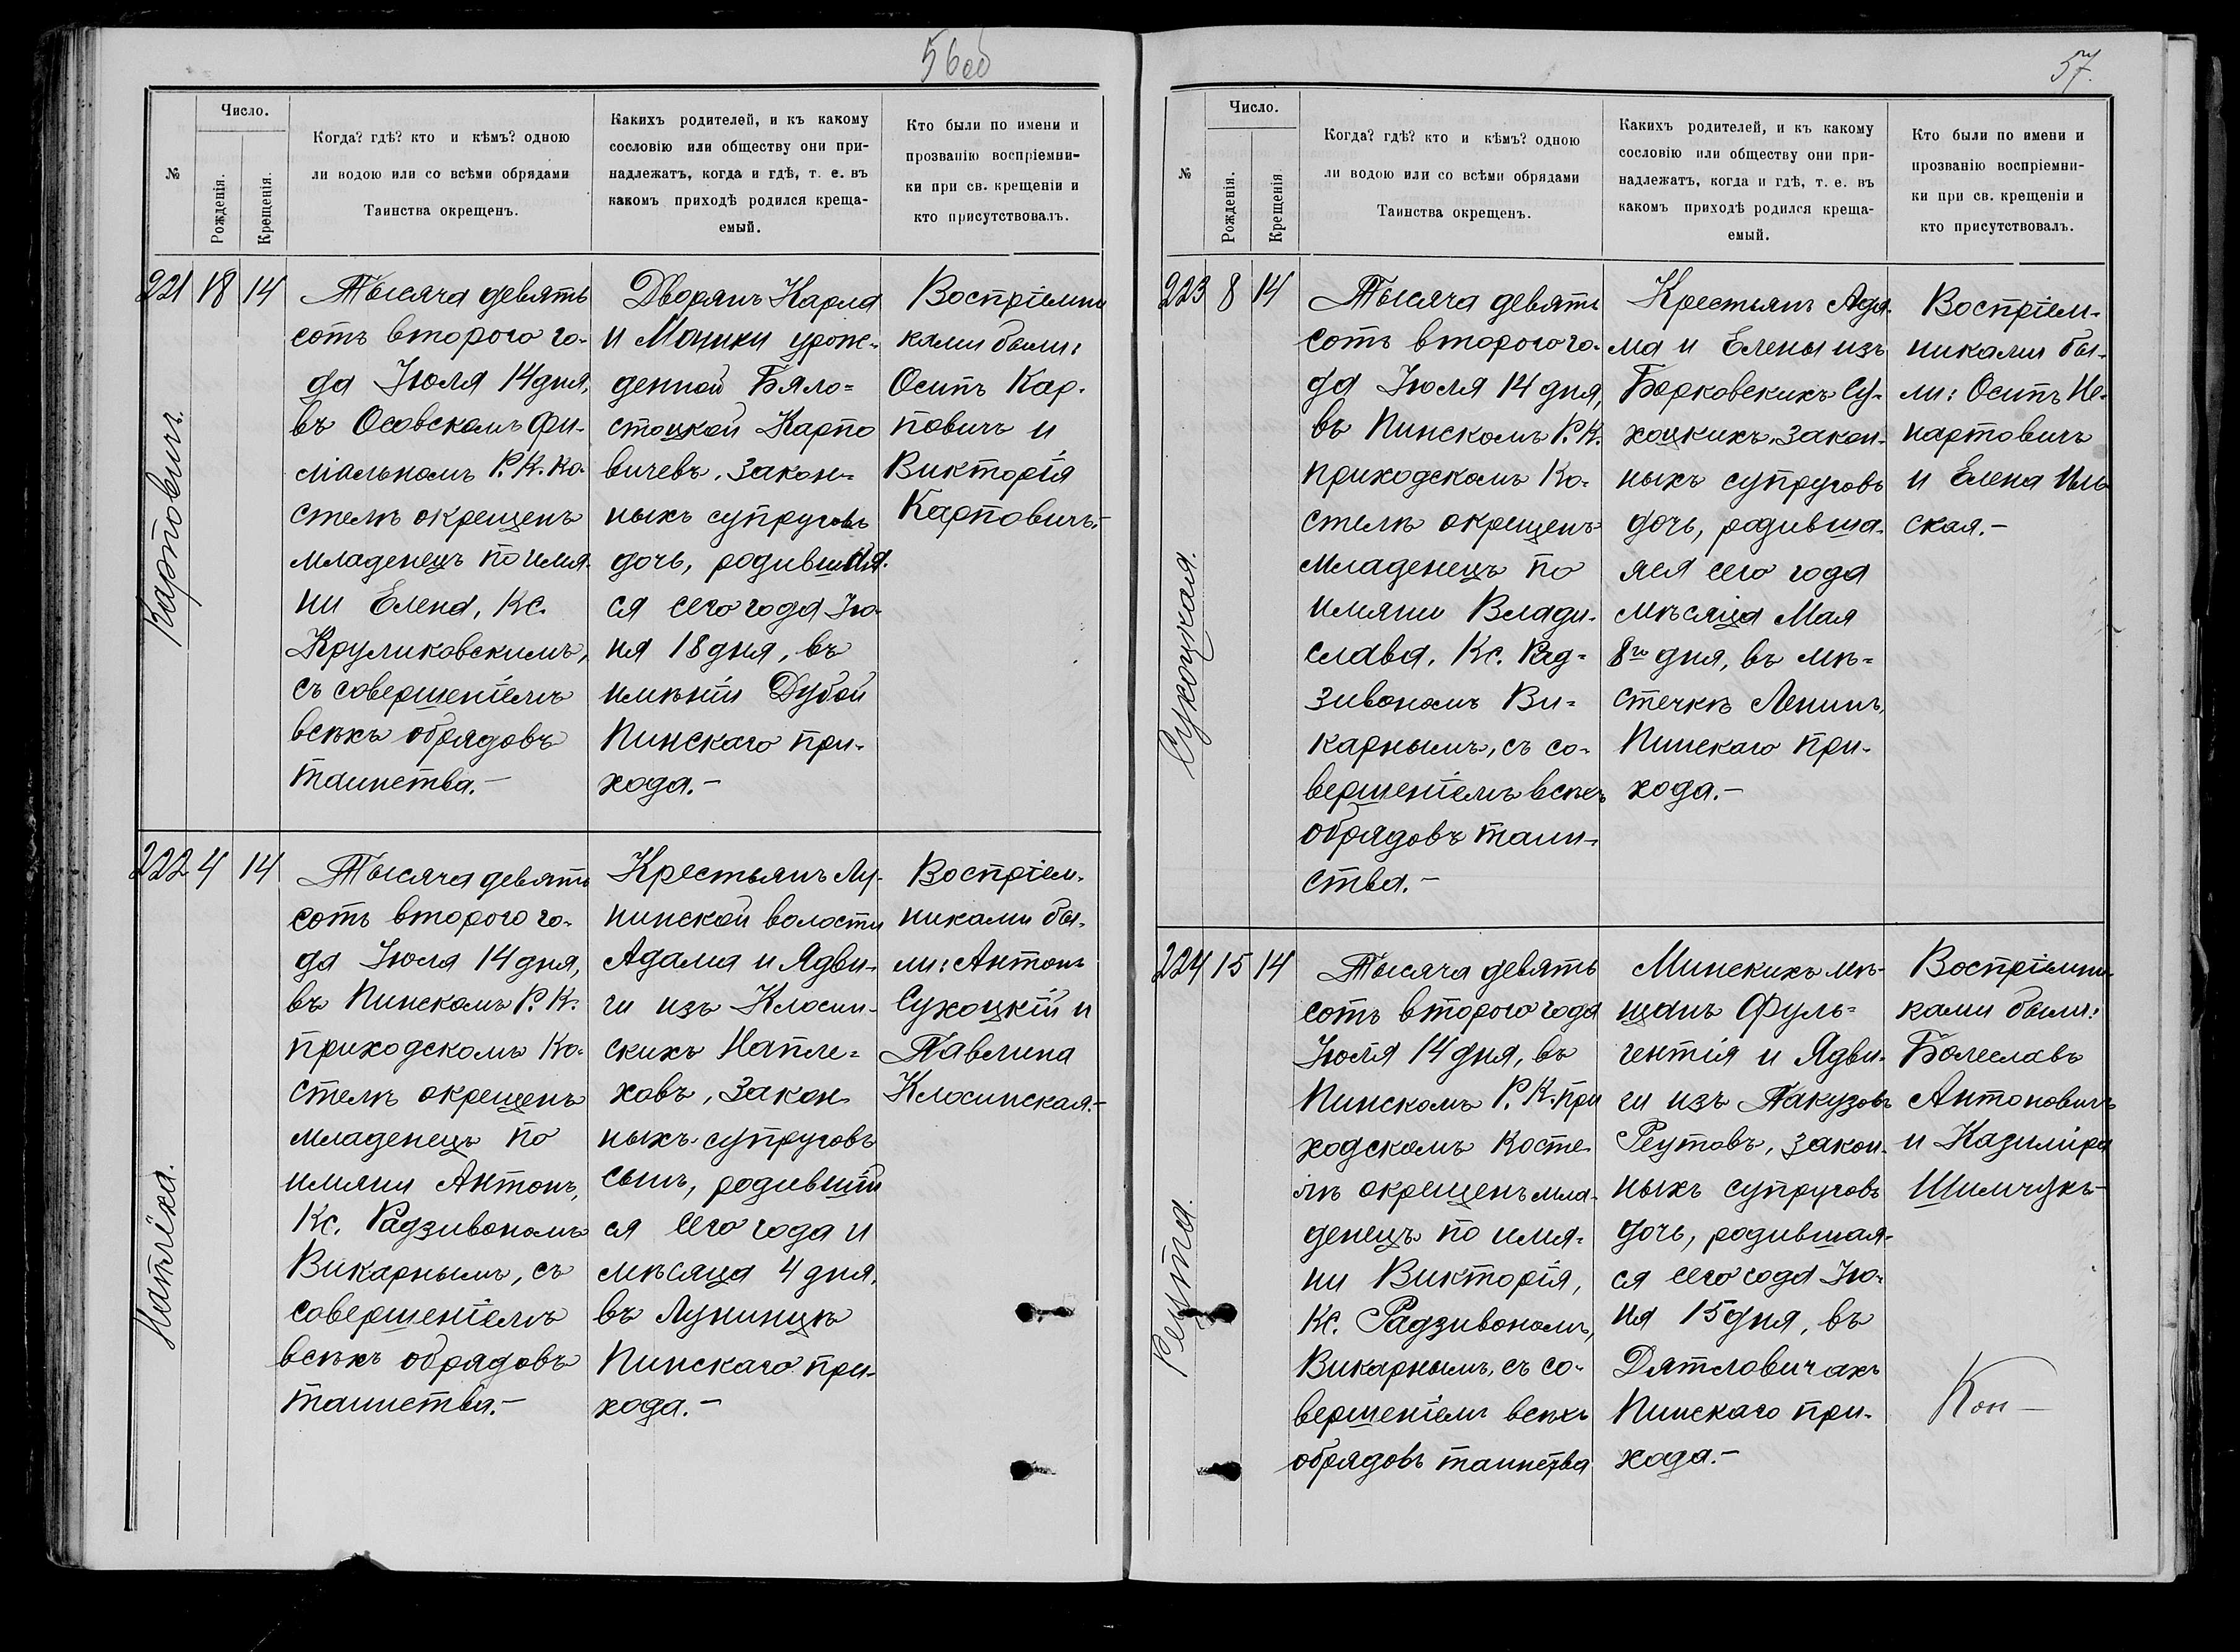 56об
№
Число.
Рожденія.
Крещенія.
Когда? гдѣ? кто и кѣмъ? одною
ли водою или со всѣми обрядами
Таинства окрещенъ.
Какихъ родителей, и къ какому
сословію или обществу они при-
надлежатъ, когда и гдѣ, т. е. въ
какомъ приходѣ родился креща-
емый.
Кто были по имени и
прозванію воспріемни-
ки при св. крещеніи и
кто присутствовалъ.
221 18 14
Карповичъ.
Тысяча девять
сотъ второго го-
да Іюля 14 дня,
въ Осовскомъ фи-
ліальномъ Р. К. Ко-
стелѣ окрещенъ
младенецъ по имя-
ни Елена, Кс.
Круликовскимъ,
съ совершеніемъ
всѣхъ обрядовъ
таинства.-
Дворянъ Карла
и Моники урож-
денной Бяло-
стоцкой Карпо
вичевъ, закон-
ныхъ супруговъ
дочь, родившая-
ся сего года Ію-
ня 18 дня, въ
имѣніи Дубой
Пинскаго при-
хода.-
Воспріемни
ками были:
Осипъ Кар-
повичъ и
Викторія
Карповичъ.-
222 4 14
Наплёха.
Тысяча девять
сотъ второго го-
да Іюля 14 дня,
въ Пинскомъ Р. К.
приходскомъ Ко-
стелѣ окрещенъ
младенецъ по
имяни Антонъ,
Кс. Радзивономъ
Викарнымъ, съ
совершеніемъ
всѣхъ обрядовъ
таинства.-
Крестьянъ Лу-
нинской волости
Адама и Ядви-
ги изъ Клосин-
скихъ Напле-
ховъ, закон
ныхъ супруговъ
сынъ, родившій
ся сего года и
мѣсяца 4 дня,
въ Лунинцѣ
Пинскаго при-
хода.-
Воспріем-
никами бы-
ли: Антонъ
Сухоцкій и
Павлина
Клосинская.-
57.
№
Число.
Рожденія.
Крещенія
Когда? гдѣ? кто и кѣмъ? одною
ли водою или со всѣми обрядами
Таинства окрещенъ.
Какихъ родителей, и къ какому
сословію или обществу они при-
надлежатъ, когда и гдѣ, т. е. въ
какомъ приходѣ родился креща-
емый.
Кто были по имени и
прозванію воспріемни-
ки при св. крещеніи и
кто присутствовалъ.
223 8 14
Сухоцкая.
Тысяча девять
сотъ второго го-
да Іюля 14 дня,
въ Пинскомъ Р. К.
приходскомъ Ко-
стелѣ окрещенъ
младенецъ по
имяни Влади-
слава, Кс. Рад-
зивономъ Ви-
карнымъ, съ со-
вершеніемъ всѣхъ
обрядовъ таин-
ства.-
Крестьянъ Ада-
ма и Елены изъ
Борковскихъ Су-
хоцкихъ, закон-
ныхъ супруговъ
дочь, родивша-
яся сего года
мѣсяца Мая
8го дня, въ мѣ-
стечкѣ Ленинъ,
Пинскаго при-
хода.-
Воспріем-
никами бы-
ли: Осипъ
и Елена
ская.-
224 15 14
Реутта.
Тысяча девять
сотъ второго года
Іюля 14 дня, въ
Пинскомъ Р. К. при
ходскомъ Косте-
лѣ окрещенъ мла-
денецъ по имя-
ни Викторія,
Кс. Радзивономъ,
Викарнымъ, съ со-
вершеніемъ всѣхъ
обрядовъ таинства
Минскихъ мѣ-
щанъ Фуль-
гентія и Ядви-
ги изъ Пакузовъ
Реутовъ, закон-
ныхъ супруговъ
дочь, родившая-
ся сего года Ію-
ня 15 дня, въ
Дятловичахъ
Пинскаго при-
хода.-
Воспріемни-
ками были:
Болеславъ
Антоновичъ
и Казиміра
Шимчукъ-
Кон-